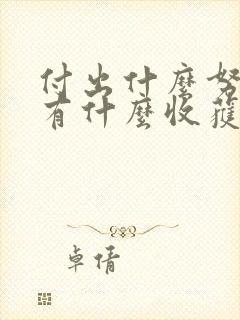 付出什麼努
有什麼收獲
卓倩